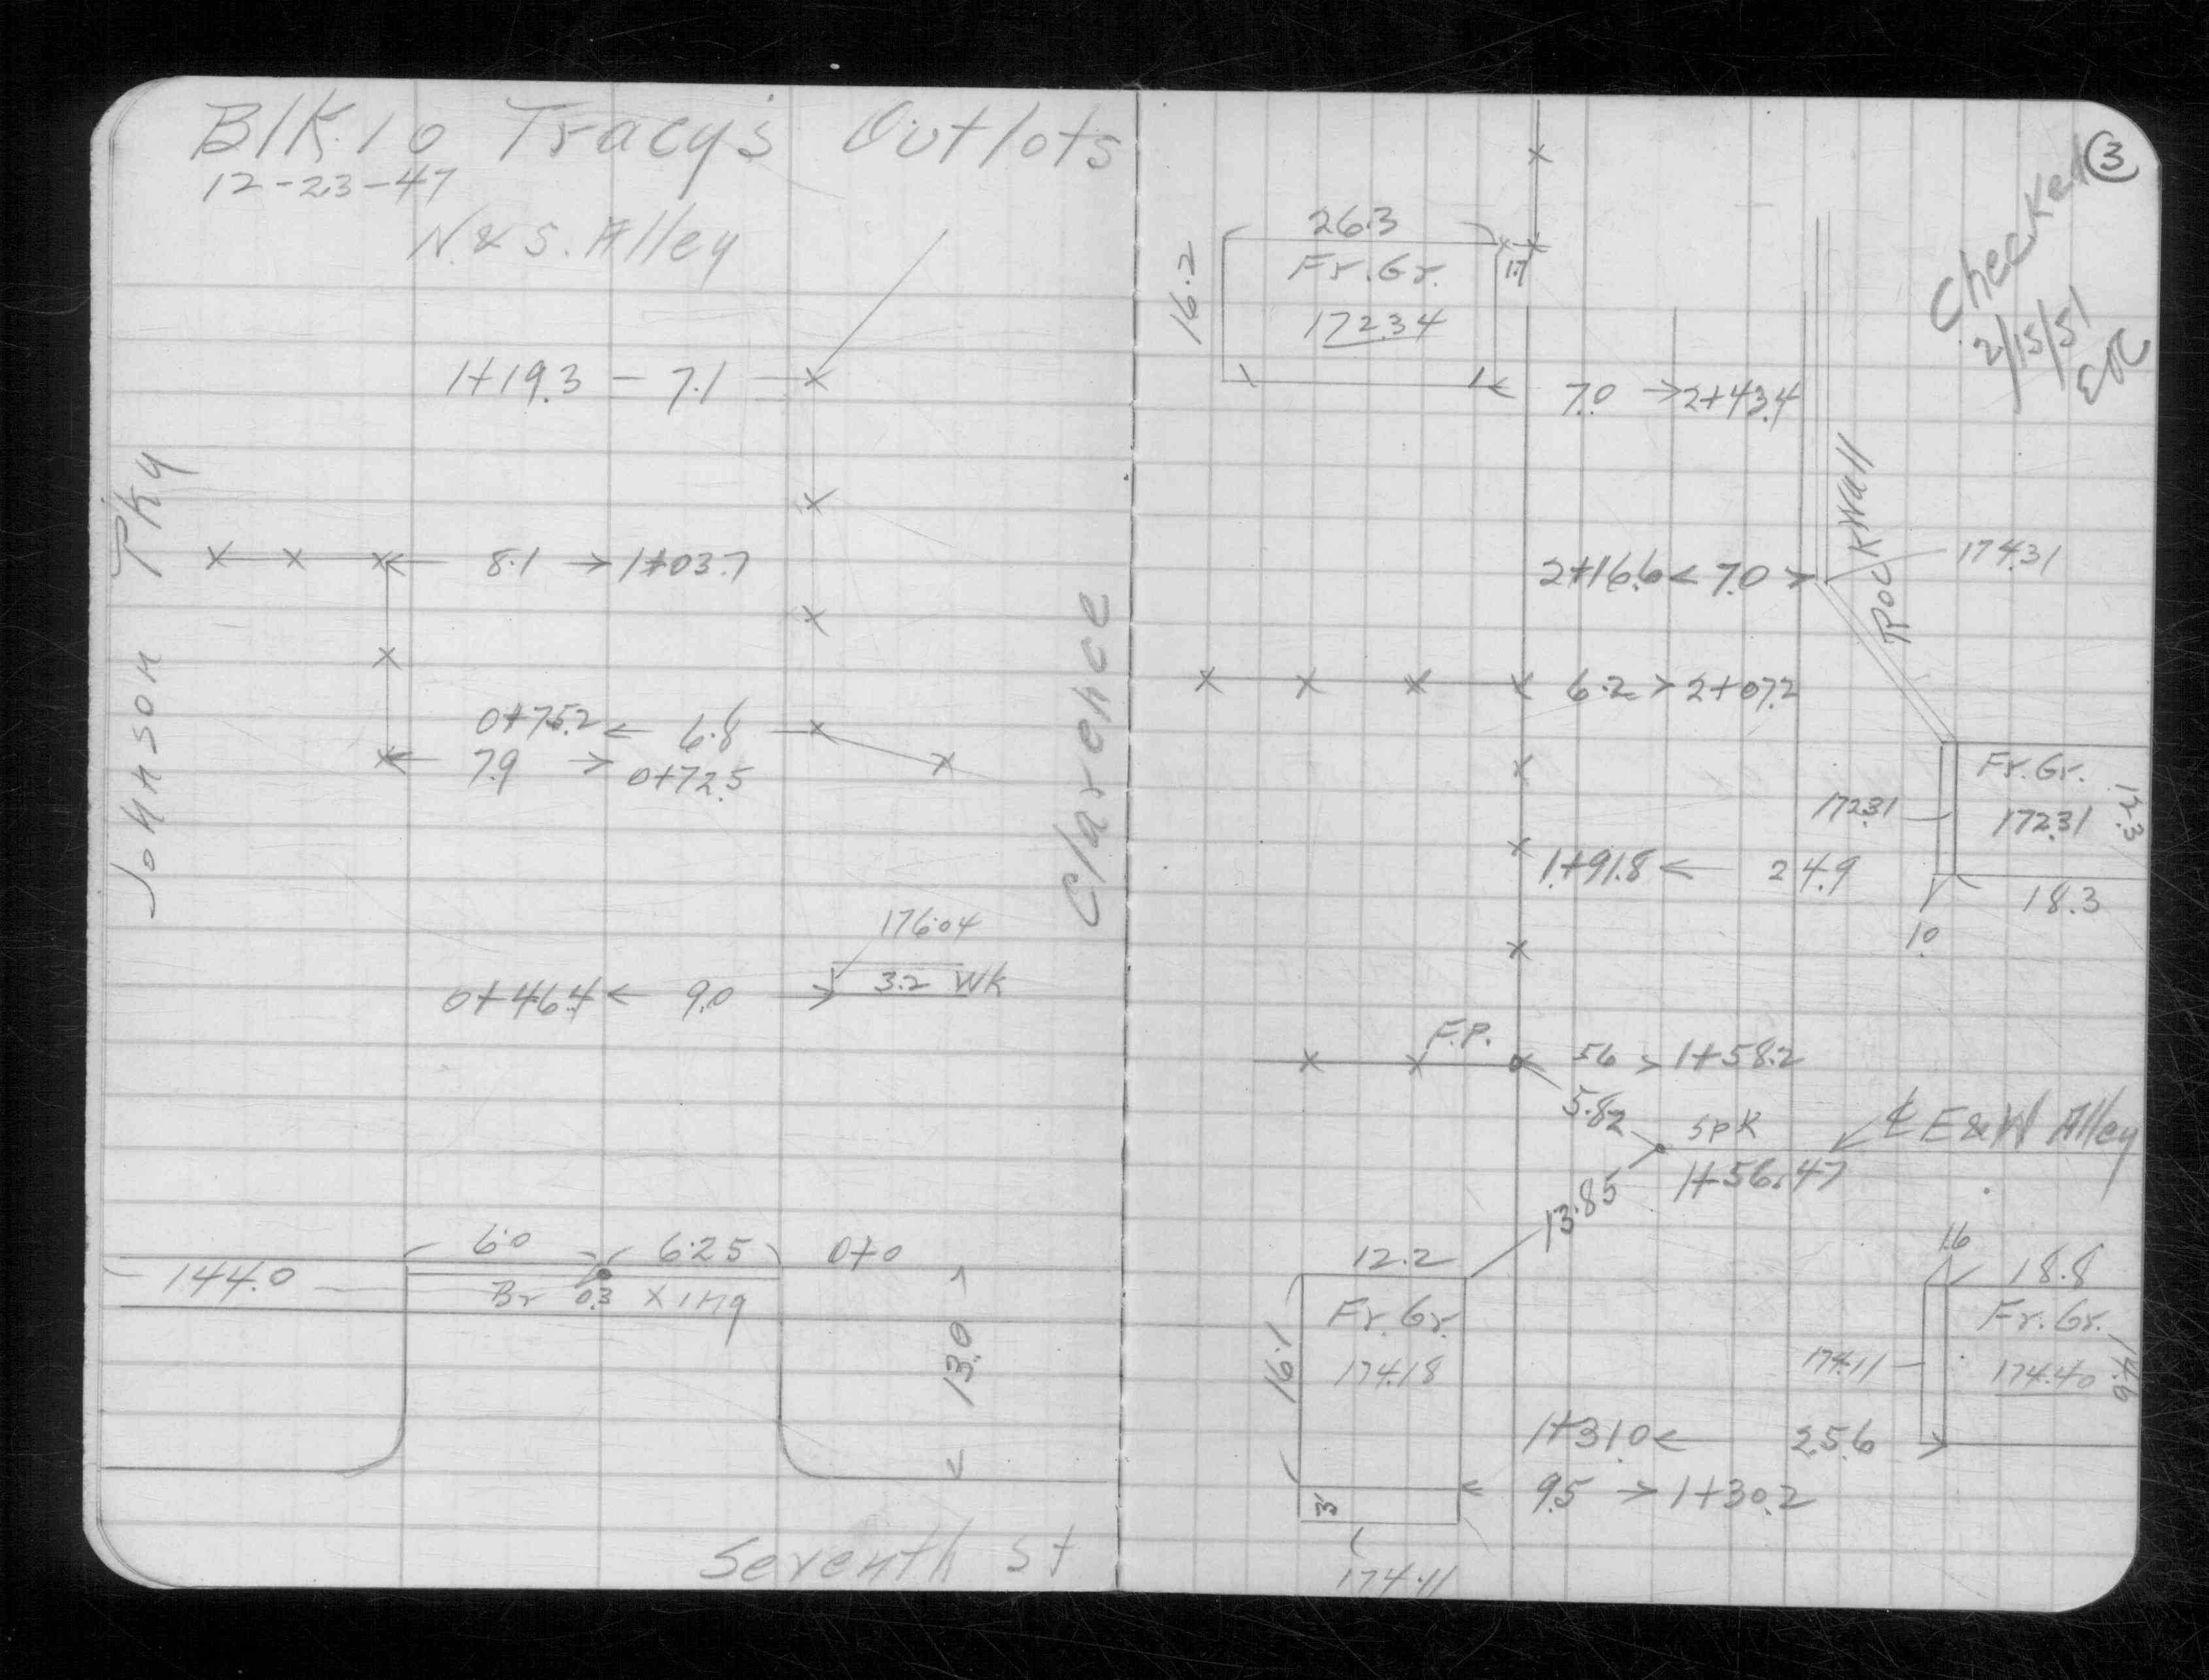 Blk. 10 Tracy's Outlots
12-23-47
N. & S. Alley
1+19.3 - 7.1
Johnson Pky
8.1 1+03.7
0+75.2 6.8
7.9 0+72.5
Clarence
176.04
0+46.4 9.0 3.2 Wk
6.0 6.25 0+0
144.0 Br 0.3 Xing
13.0
Seventh St
3
Checked
2/15/51
26.3
16.2
Fr. Gr. 1.7
172.34
7.0 2+43.4
Rock Wall
2+16.6 7.0 174.31
6.2 2+07.2
Fr. Gr.
172.31 172.31
1+91.8 24.9
18.3
1.0
F.P.
5.6 1+58.2
5.82
Spk
℄ E & W Alley
1+56.47
13.85
12.2
1.6 18.8
16.1
Fr. Gr.
174.18
Fr. Gr.
174.11 174.40
14.6
1+31.0 25.6
3' 9.5 1+30.2
174.11